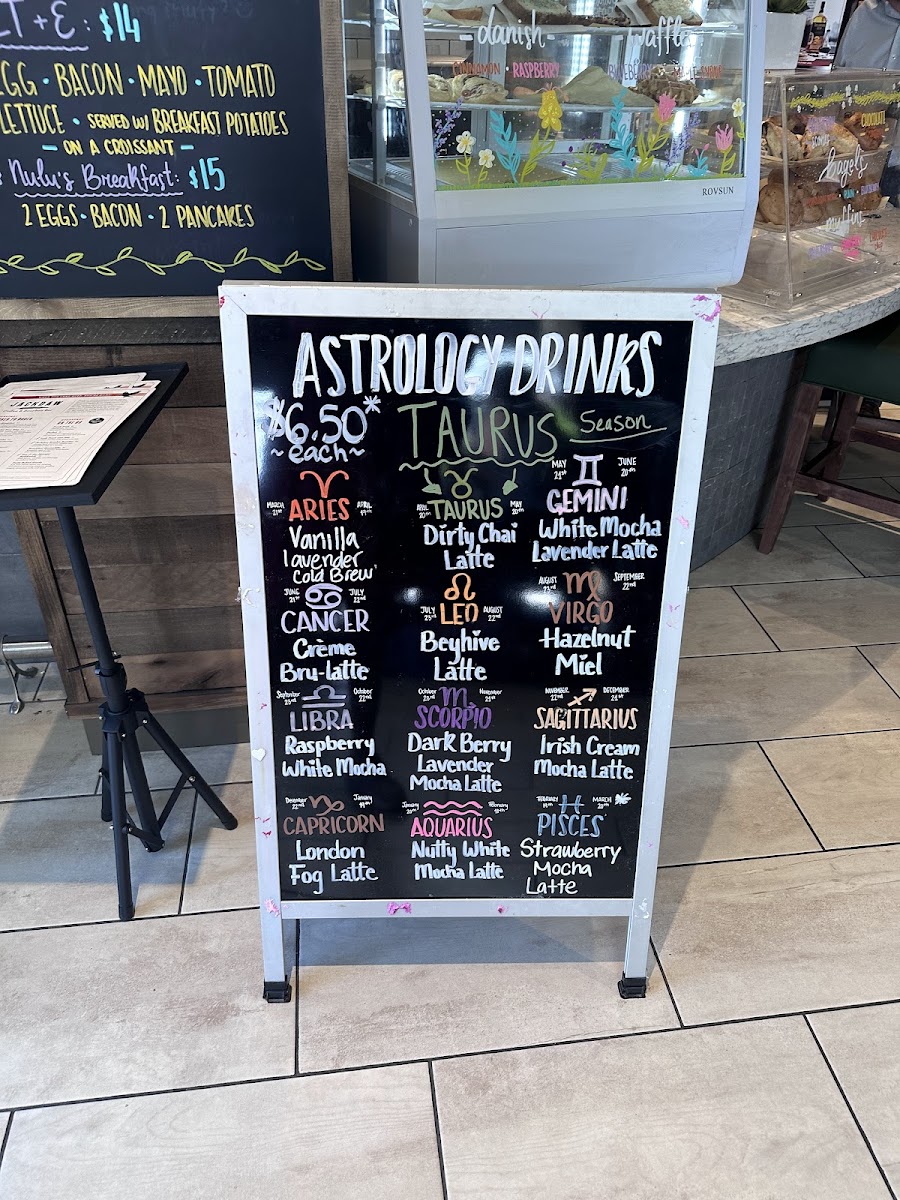 LT + E : $14
EGG · BACON · MAYO · TOMATO
LETTUCE · SERVED W/ BREAKFAST POTATOES
- ON A CROISSANT -
Nulu's Breakfast: $15
2 EGGS · BACON · 2 PANCAKES
danish
CINNAMON · RASPBERRY
waffle
BLUEBERRY
ROVSUN
CHOCOLATE
bagels
muffins
JACKDAW
ASTROLOGY DRINKS
$6.50*
~each~
TAURUS Season
MARCH 21st APRIL 19th
ARIES
Vanilla
lavender
Cold Brew
APRIL 20th MAY 20th
TAURUS
Dirty Chai
Latte
MAY 21st JUNE 20th
GEMINI
White Mocha
Lavender Latte
JUNE 21st JULY 22nd
CANCER
Crème
Bru-latte
JULY 23rd AUGUST 22nd
LEO
Beyhive
Latte
AUGUST 23rd SEPTEMBER 22nd
VIRGO
Hazelnut
Miel
September 23rd October 22nd
LIBRA
Raspberry
White Mocha
October 23rd November 21st
SCORPIO
Dark Berry
Lavender
Mocha Latte
NOVEMBER 22nd DECEMBER 21st
SAGITTARIUS
Irish Cream
Mocha Latte
December 22nd January 19th
CAPRICORN
London
Fog Latte
January 20th February 18th
AQUARIUS
Nutty White
Mocha Latte
FEBRUARY 19th MARCH 20th
PISCES
Strawberry
Mocha
Latte